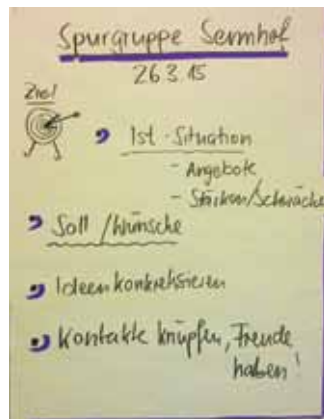 Spurgruppe Sennhof
26.3.15
Ziel!
Ist-Situation
- Angebote
- Stärken/Schwäche
Soll/Wünsche
Ideen konkretisieren
Kontakte knüpfen, Freude
haben!